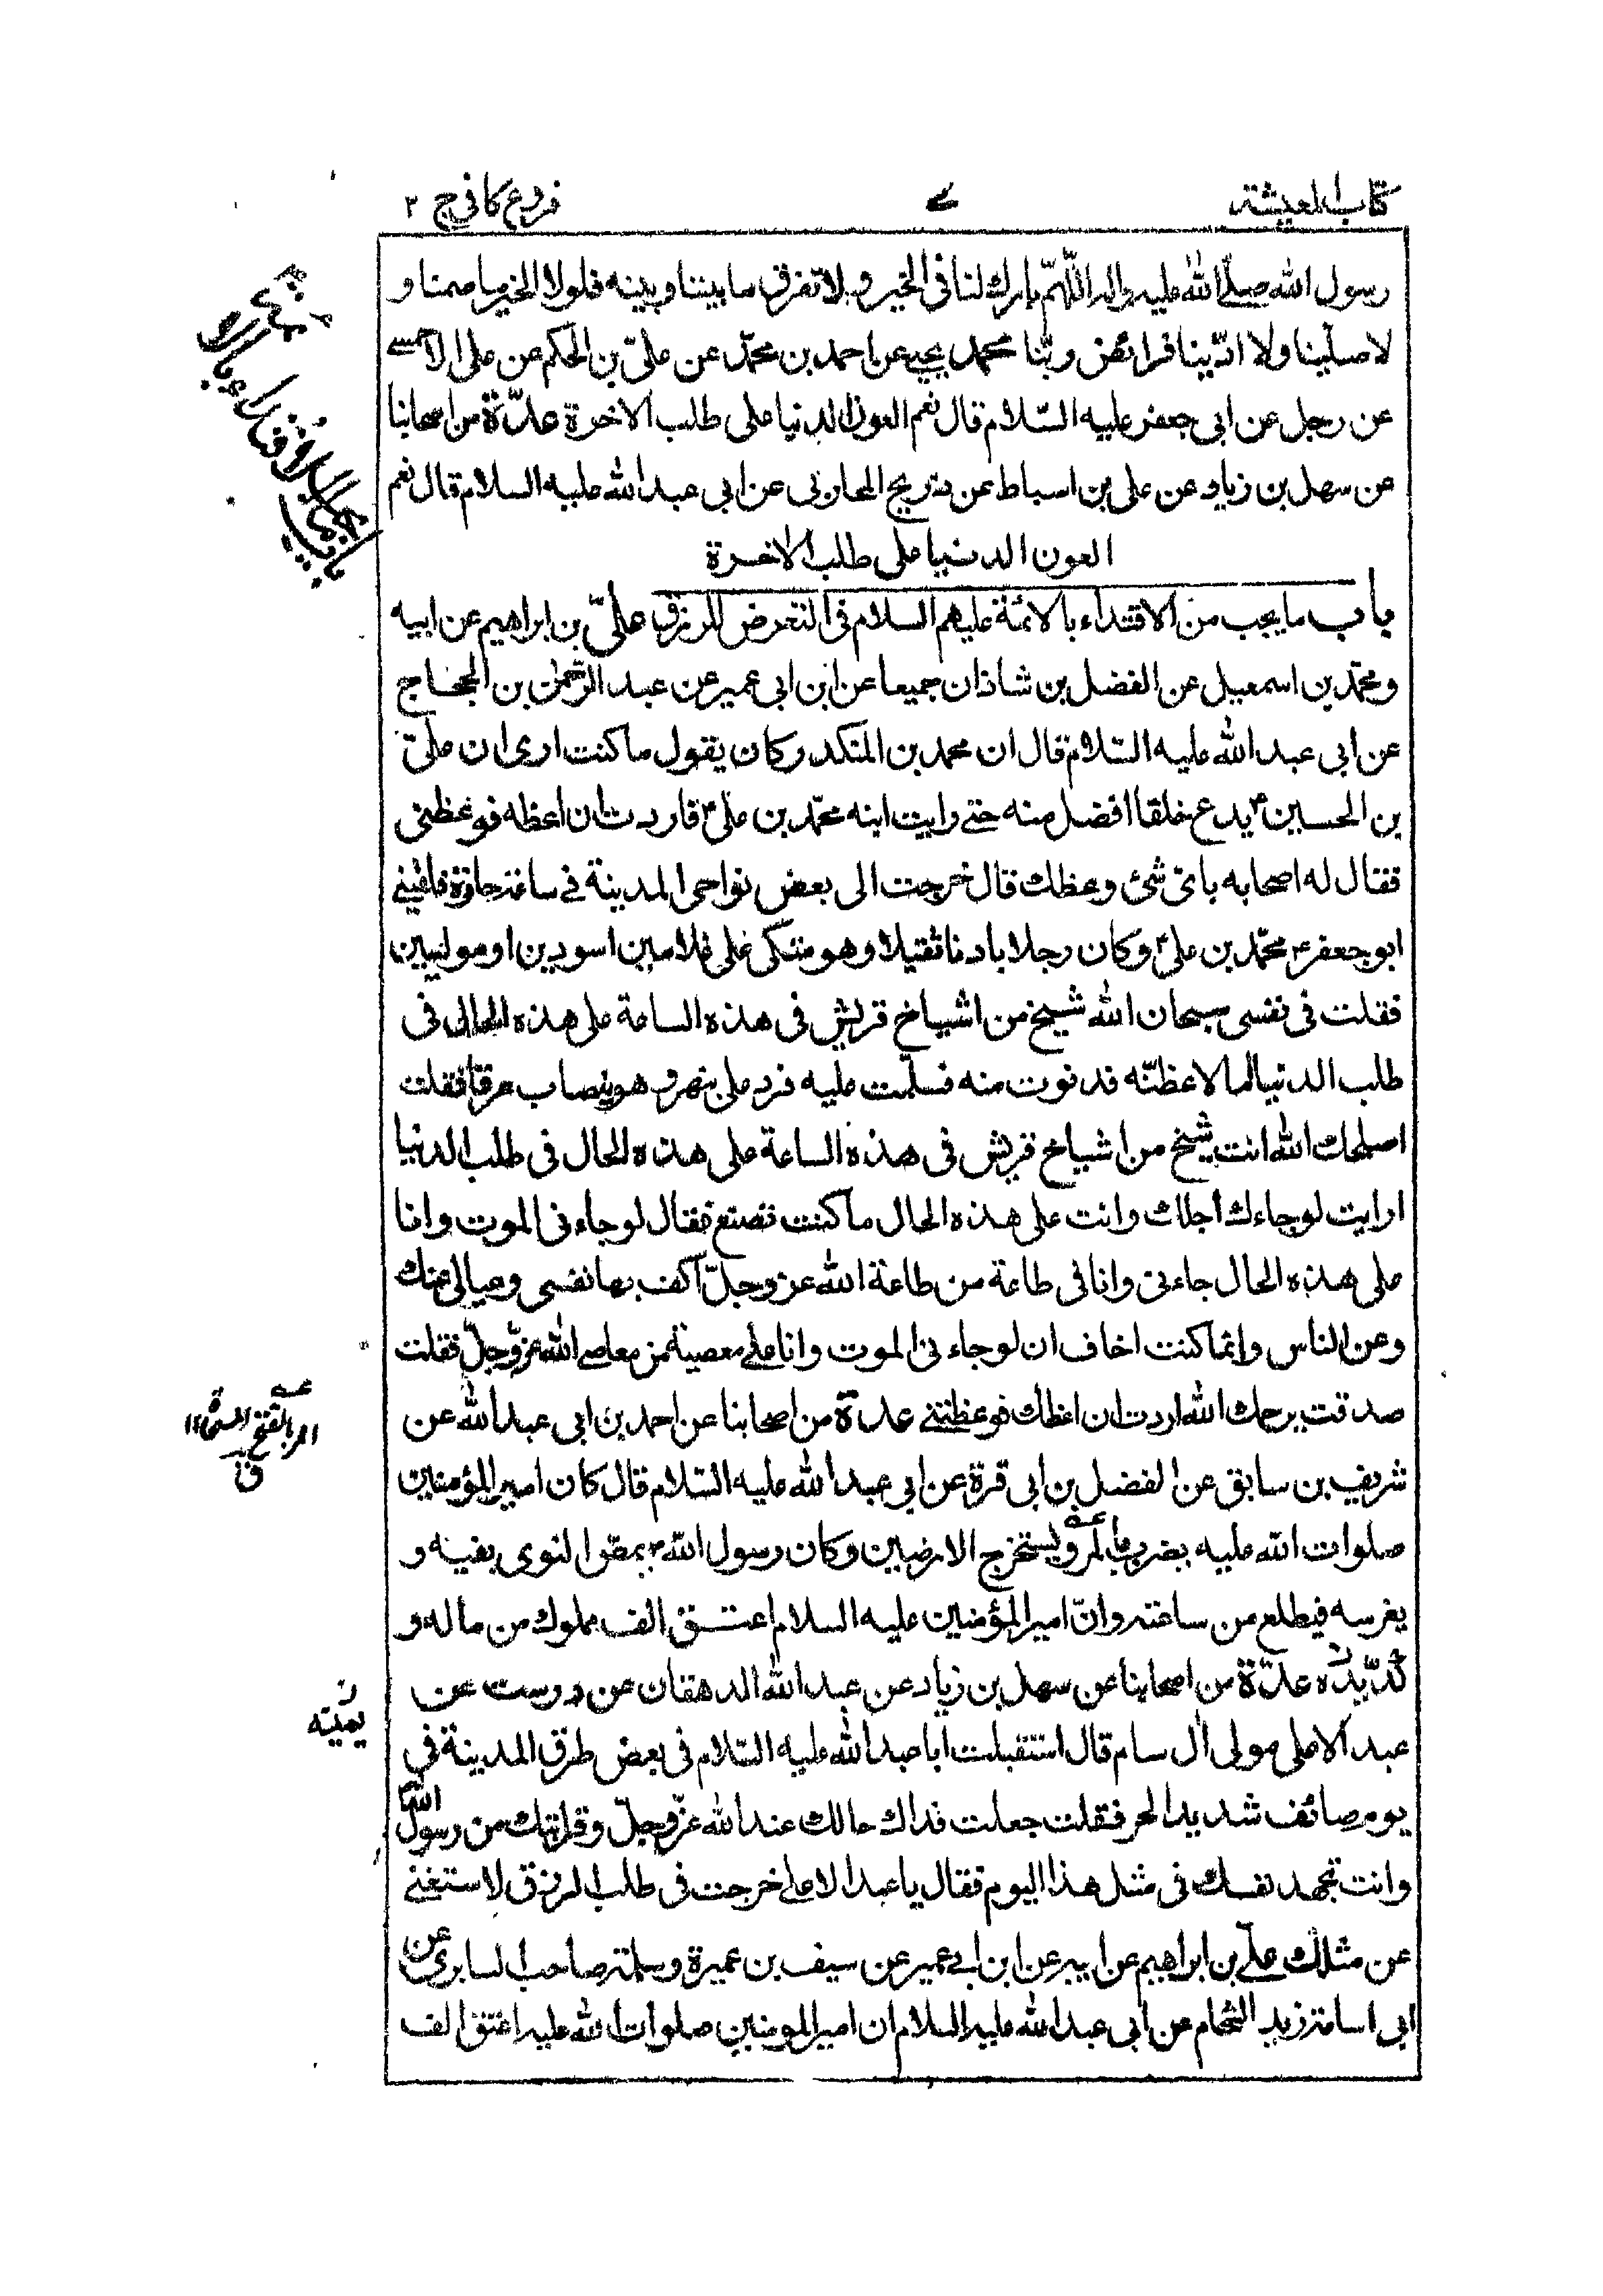 كتاب المعيشة
فروع كافي ج ٢
رسول الله صلّى الله عليه واله اللّهمّ بارك لنا فى الخبز ولا تفرق ما بيننا وبينه فلولا الخبز ما صمنا و
لا صلّينا ولا ادّينا فرائض ربّنا محمد يحيى عن احمد بن محمّد عن علىّ بن الحكم عن على الاحمسى
عن رجل عن ابى جعفر عليه السّلام قال نعم العون الدنيا على طلب الاخرة عدّة من اصحابنا
عن سهل بن زياد عن على بن اسباط عن ذريح المحاربى عن ابى عبد الله عليه السلام قال نعم
العون الدنيا على طلب الاخرة
باب ما يجب من الاقتداء بالائمّة عليهم السلام فى التعرض للرزق علىّ بن ابراهيم عن ابيه
ومحمّد بن اسمعيل عن الفضل بن شاذان جميعا عن ابن ابى عمير عن عبد الرّحمٰن بن الحجّاج
عن ابى عبد الله عليه السّلام قال ان محمد بن المنكدر كان يقول ما كنت ارى ان علىّ
بن الحسين ع يدع خلقا افضل منه حتى رايت ابنه محمّد بن على ع فاردت ان اعظه فوعظنى
فقال له اصحابه باىّ شئ وعظك قال خرجت الى بعض نواحى المدينة فى ساعة حارّة فلقينى
ابو جعفر ع محمّد بن على ع وكان رجلا بادنا ثقيلا وهو متكى على غلامين اسودين او موليين
فقلت فى نفسى سبحان الله شيخ من اشياخ قريش فى هذه الساعة على هذه الحال فى
طلب الدنيا اما لاعظنّه فدنوت منه فسلّمت عليه فرد على بنهر وهو يتصاب عرقا فقلت
اصلحك الله انت شيخ من اشياخ قريش فى هذه الساعة على هذه الحال فى طلب الدنيا
ارايت لو جاءك اجلك وانت على هذه الحال ما كنت تصنع فقال لو جاءنى الموت وانا
على هذه الحال جاءنى وانا فى طاعة من طاعة الله عز وجلّ اكف بها نفسى وعيالى عنك
وعن الناس وانما كنت اخاف ان لو جاءنى الموت وانا على معصية من معاصى الله عزّ وجلّ فقلت
صدقت يرحمك الله اردت ان اعظك فوعظتنى عدة من اصحابنا عن احمد بن ابى عبد الله عن
شريف بن سابق عن الفضل بن ابى قرة عن ابى عبد الله عليه السّلام قال كان امير المؤمنين
صلوات الله عليه يضرب بالمر ويستخرج الارضين وكان رسول الله ص يمصّ النوى بفيه و
يغرسه فيطلع من ساعته وانّ امير المؤمنين عليه السلام اعتق الف مملوك من ماله و
كدّ يده عدّة من اصحابنا عن سهل بن زياد عن عبد الله الدهقان عن درست عن
عبد الاعلى مولى آل سام قال استقبلت ابا عبد الله عليه السّلام فى بعض طرق المدينة فى
يوم صائف شديد الحر فقلت جعلت فداك حالك عند الله عزّ وجلّ وقرابتك من رسول الله
وانت تجهد نفسك فى مثل هذا اليوم فقال يا عبد الاعلى خرجت فى طلب الرزق لاستغنى
عن مثلك على بن ابراهيم عن ابيه عن ابن ابى عمير عن سيف بن عميرة وسلمة صاحب السابرى عن
ابى اسامة زيد الشحام عن ابى عبد الله عليه السلام ان امير المومنين صلوات الله عليه اعتق الف
المر بالفتح المسحاة
ق
ن
يمينه